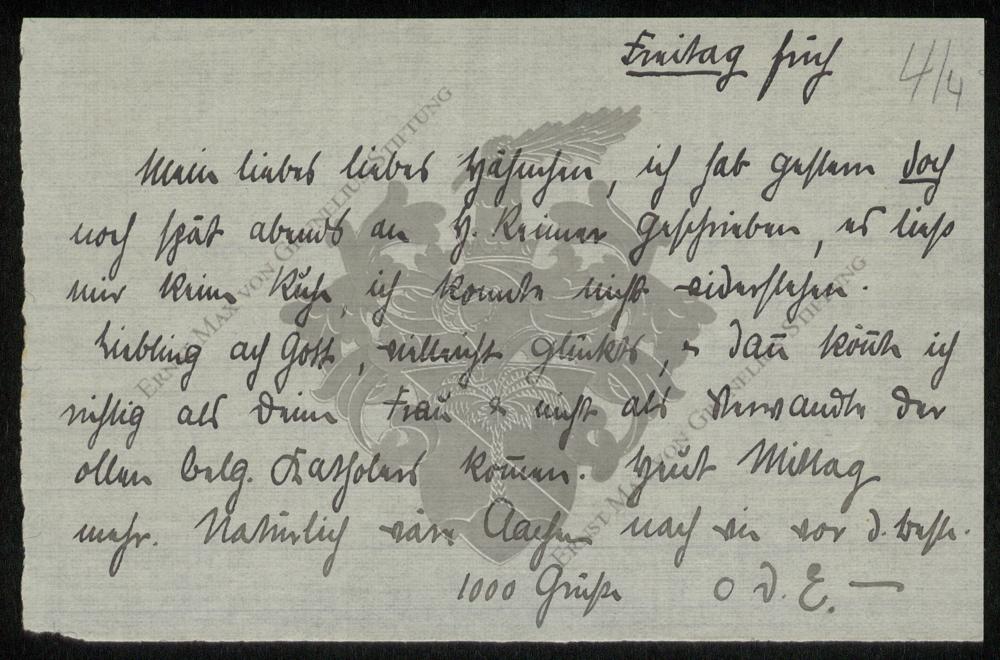 Freitag früh 4/4
Mein liebes liebes Hähnchen, ich hab gestern doch
noch spät abends an H. Reimer geschrieben, es ließ
mir keine Ruhe, ich konnte nicht widerstehen.
Liebling ach Gott, vielleicht glückts, & dann könnte ich
richtig als Deine Frau & nicht als Verwandte der
ollen belg. Katholers kommen. Heut Mittag
mehr. Natürlich wäre Aachen nach wie vor d. beste.
1000 Grüße o d. E. —
ERNST MAX VON GRNELIUS STIFTUNG
ERNST MAX VON GRNELIUS STIFTUNG